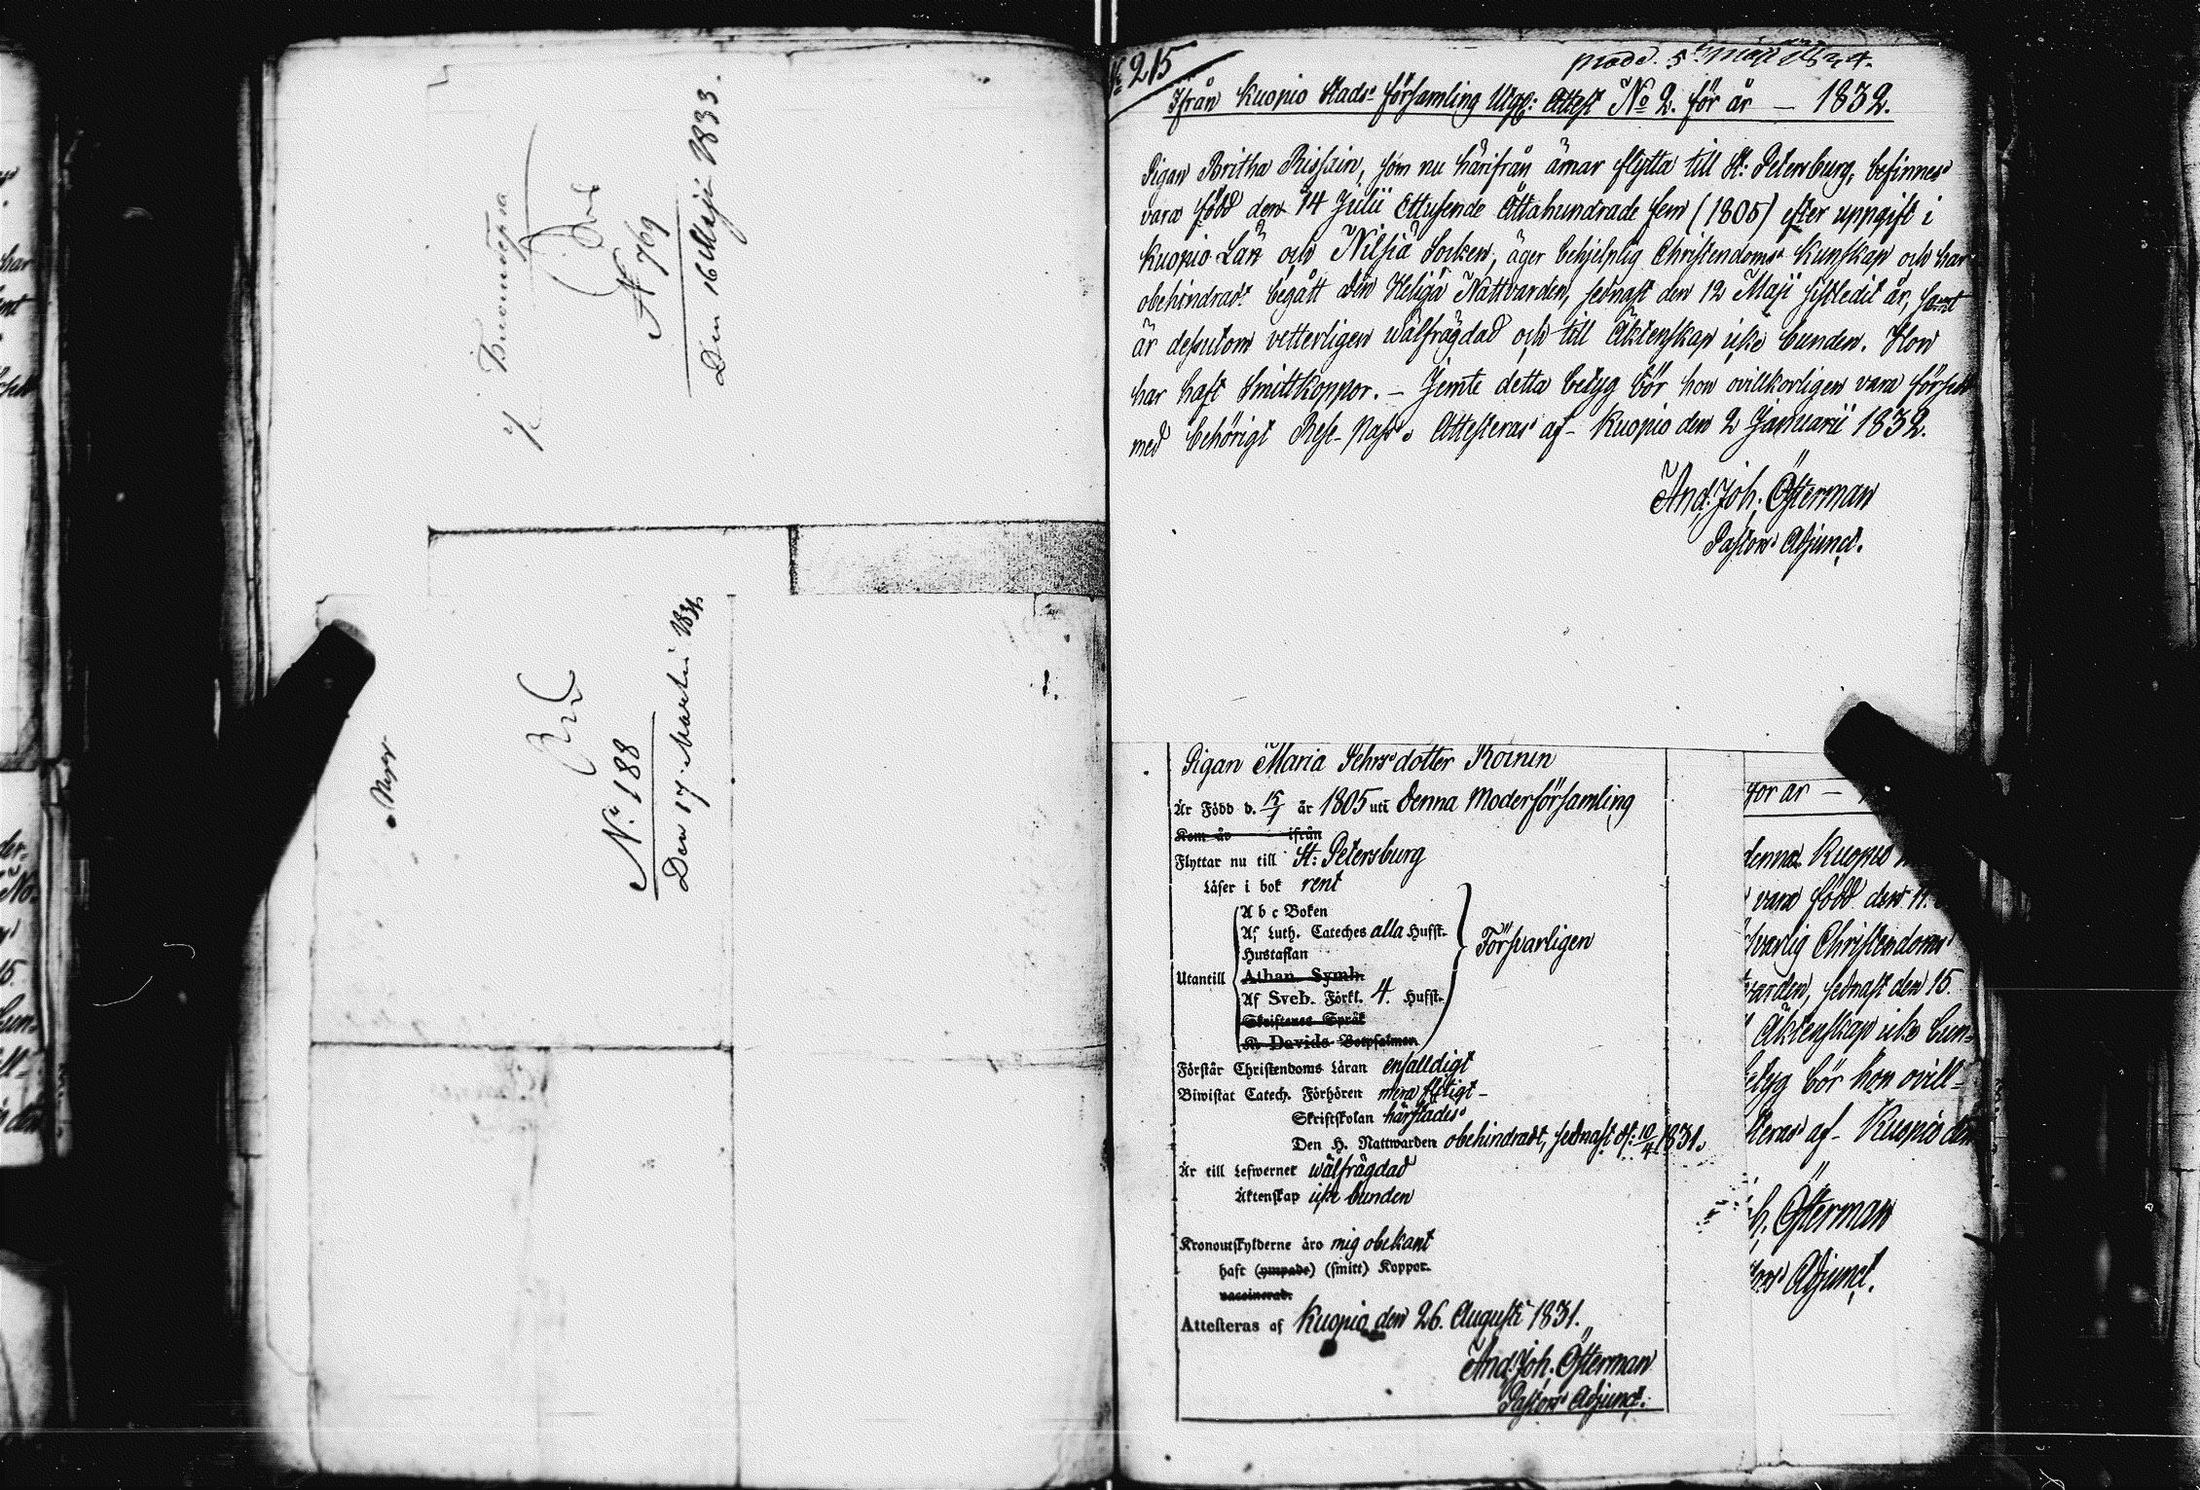 Den 16 Maji 1833.
N 769
N: 188
Den 17 Martii 1834.
№ 215
prod. 5 Maji 1834.
Ifrån Kuopio Stads Församling Utgf: Attest No 2. för år — 1832.
Pigan Britha Risskin, som nu härifrån ämar flytta till St: Petersburg, befinnes
vara född den 14 Julii Ettusende Åttahundrade fem (1805) efter uppgift i
Kuopio Län och Nilsiä Socken, äger behjelplig Christendoms Kunskap och har
obehindradt begått den Heliga Nattvarden, sednast den 12 Maji sistledit år, samt
är dessutom vetterligen wälfrägdad och till Äktenskap icke bunden. Hon
har haft Smittkoppor. — Jemte detta betyg bör hon ovillkorligen vara försedd
med behörigt Rese-Pass. Attesteras af – Kuopio den 2 Januarii 1832.
And: Joh: Österman
Pastors Adjunct.
Pigan Maria Pehrsdotter Koinin
Är Född d. 15/1 år 1805 uti denna Moderförsamling
Kom år ifrån
Flyttar nu till St: Petersburg
Läser i bok rent
A b c Boken
Af Luth. Cateches alla Hufst.
Hustaflan
Försvarligen
Utantill
Athan. Symb.
Af Sveb. Förkl. 4. Hufst.
Skriftenes Språk
K. Davids Botpsalmer
Förstår Christendoms Läran enfalldigt
Biwistat Catech. Förhören mera flitigt –
Skriftskolan härstädes
Den H. Nattwarden obehindradt, sednast d: 10/4 1831.
Är till Lefwernet wälfrägdad
Äktenskap icke bunden
Kronoutskylderne äro mig obekant
haft (ympade) (smitt) Koppor.
vaccinerad.
Attesteras af Kuopio den 26. Augusti 1831.
And: Joh: Österman
Pastors Adjunct.
för år —
denna Kuopio
vara född den 14.
Christendoms
sednast den 15.
Äktenskap icke bun-
bör hon ovill-
af – Kuopio den
Österman
Adjunct.